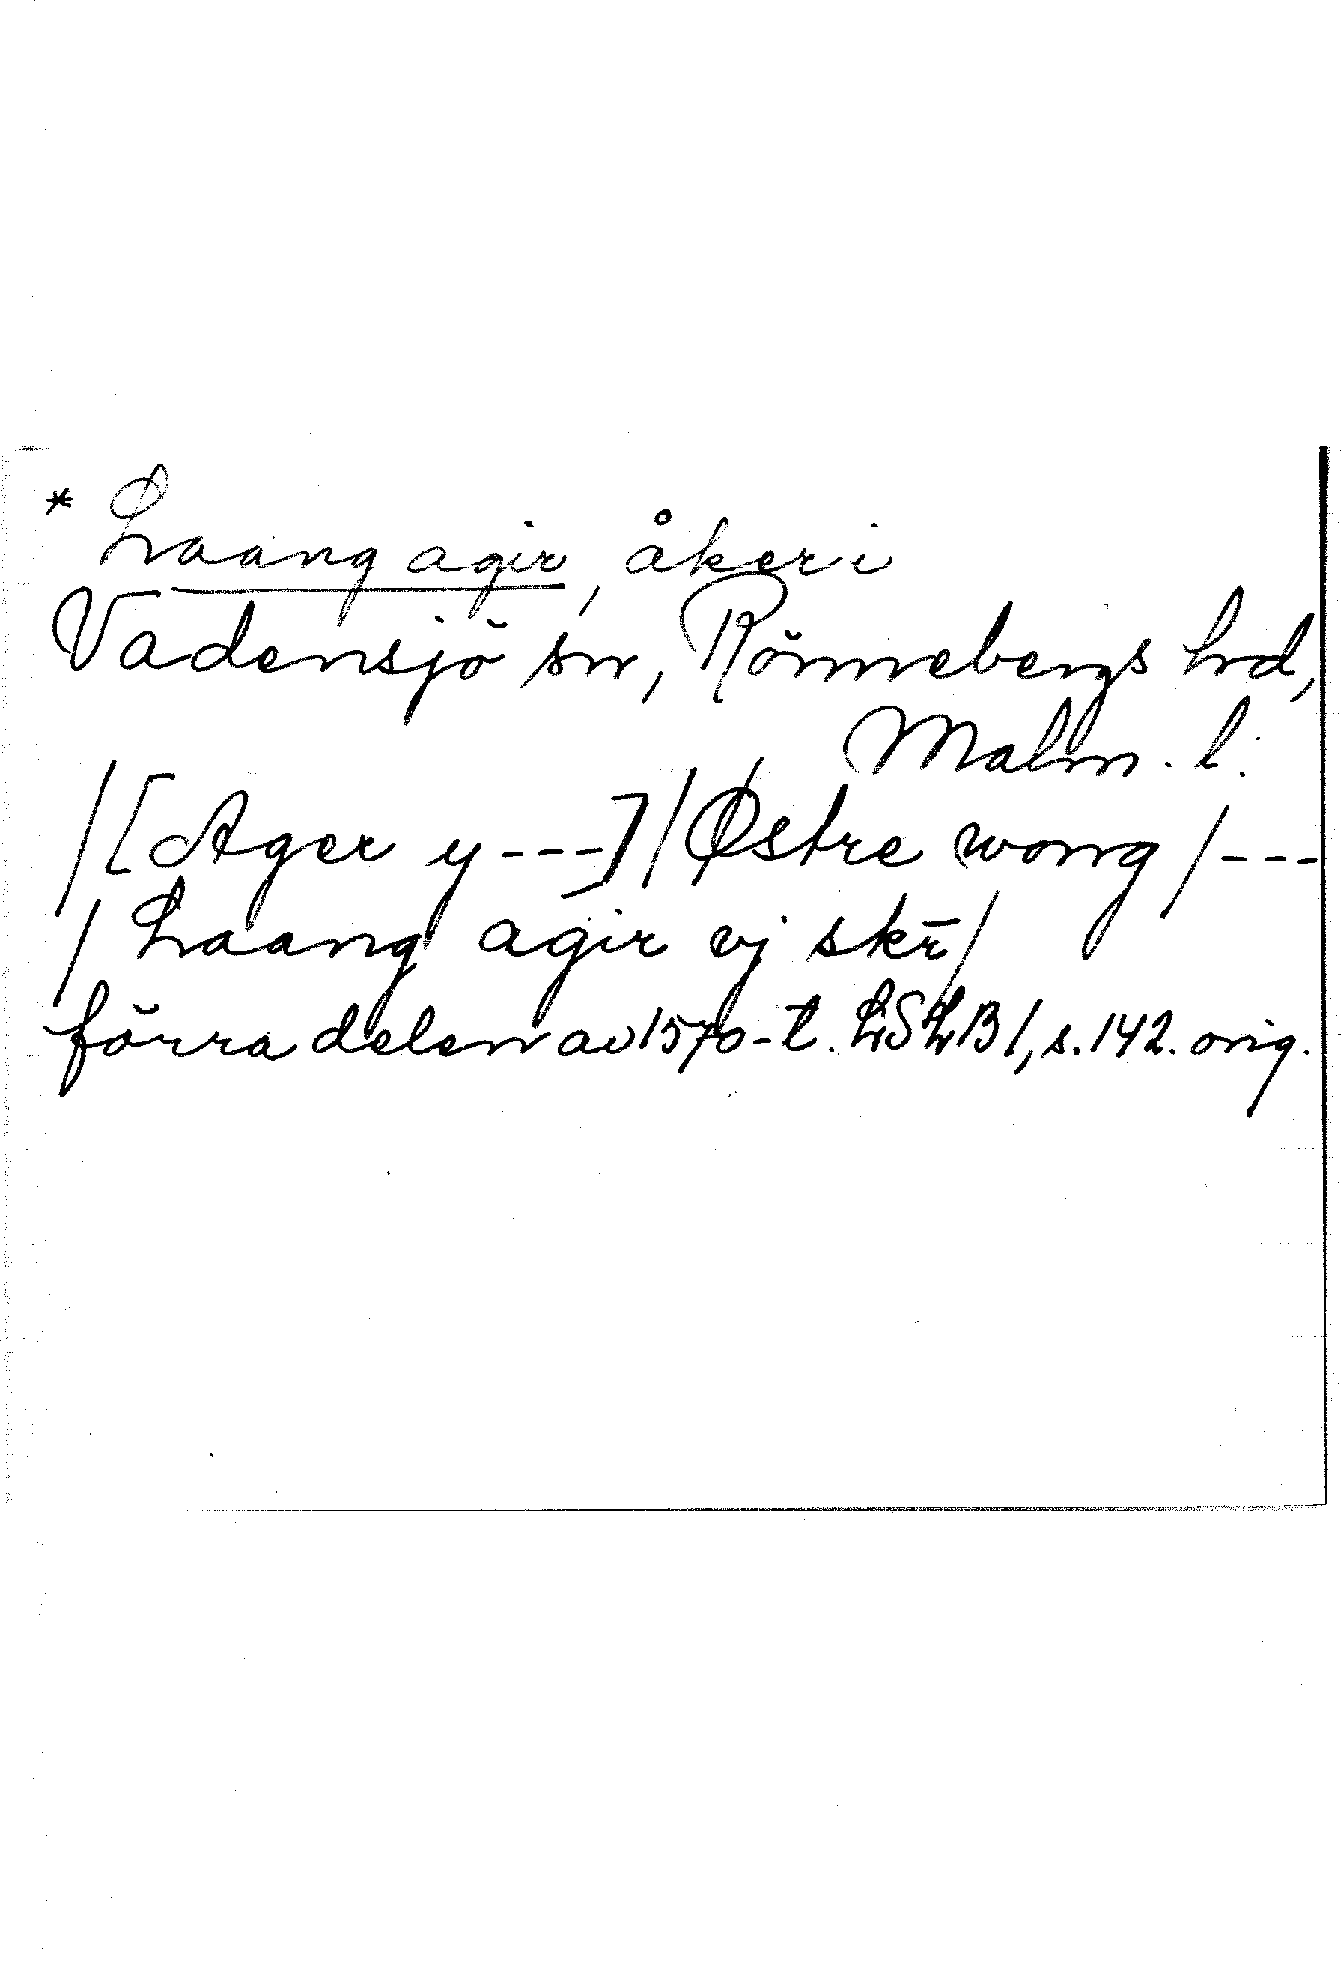 * Laang agir, åker i
Vadensjö sn, Rönnebergs hrd,
Malm. l.
/[Ager y ---]/Østre wong/---
/Laang agir vj skr̄/
förra delen av 1570-t. LSLB 1, s. 142. orig.